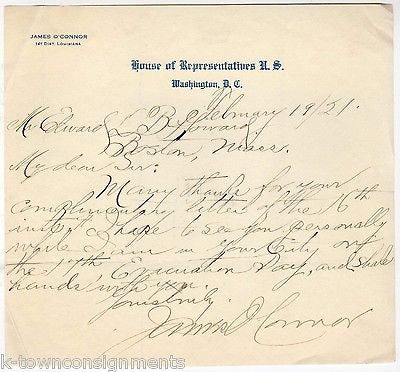 JAMES O'CONNOR
1ST DIST. LOUISIANA
House of Representatives U. S.
Washington, D. C.
February 19/21.
Mr Edward
Boston, Mass.
My dear Sir:
Many thanks for your
complimentary letter of the 16th
inst. I hope to see you personally
while I am in your City on
the 17th, Evacuation Day, and shake
hands with you.
Yours truly,
James O'Connor
k-townconsignments